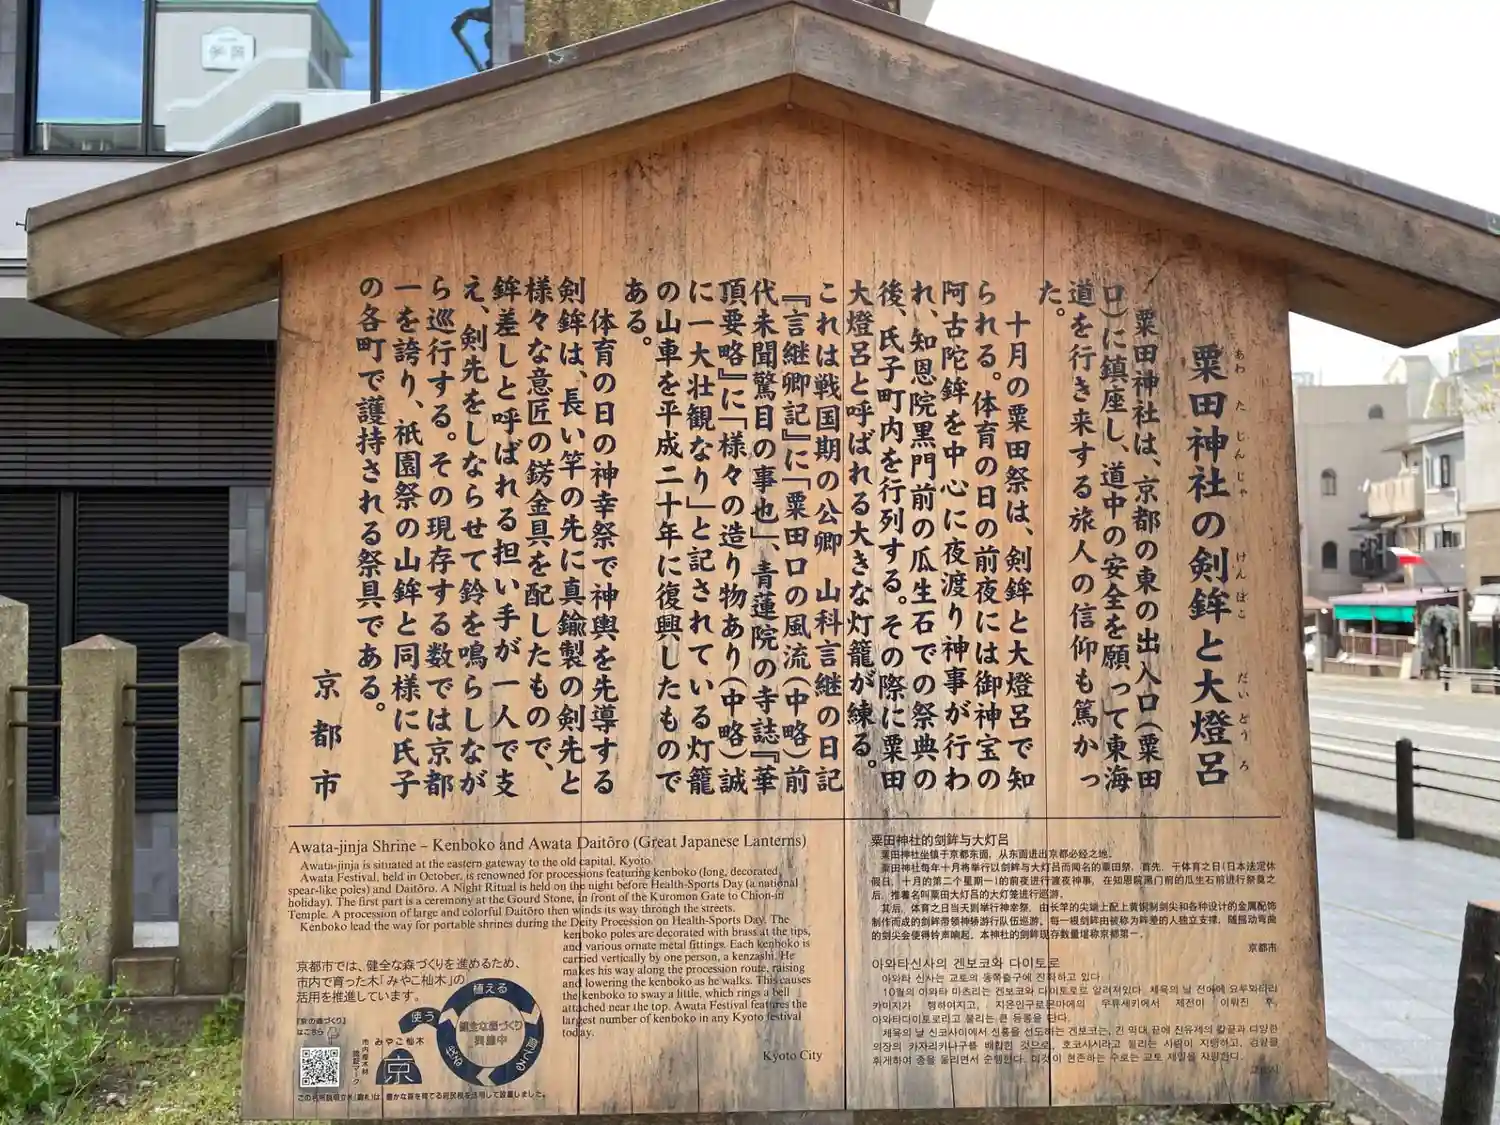 粟田神社の剣鉾と大燈呂
あわ た じんじゃ けんぼこ だいとうろ
粟田神社は、京都の東の出入口（粟田
口）に鎮座し、道中の安全を願って東海
道を行き来する旅人の信仰も篤かっ
た。
十月の粟田祭は、剣鉾と大燈呂で知
られる。体育の日の前夜には御神宝の
阿古陀鉾を中心に夜渡り神事が行わ
れ、知恩院黒門前の瓜生石での祭典の
後、氏子町内を行列する。その際に粟田
大燈呂と呼ばれる大きな灯籠が練る。
これは戦国期の公卿 山科言継の日記
『言継卿記』に「粟田口の風流（中略）前
代未聞驚目の事也」、青蓮院の寺誌『華
頂要略』に「様々の造り物あり（中略）誠
に一大壮観なり」と記されている灯籠
の山車を平成二十年に復興したもので
ある。
体育の日の神幸祭で神輿を先導する
剣鉾は、長い竿の先に真鍮製の剣先と
様々な意匠の錺金具を配したもので、
鉾差しと呼ばれる担い手が一人で支
え、剣先をしならせて鈴を鳴らしなが
ら巡行する。その現存する数では京都
一を誇り、祇園祭の山鉾と同様に氏子
の各町で護持される祭具である。
京都市
Awata-jinja Shrine – Kenboko and Awata Daitôro (Great Japanese Lanterns)
Awata-jinja is situated at the eastern gateway to the old capital, Kyoto.
Awata Festival, held in October, is renowned for processions featuring kenboko (long, decorated,
spear-like poles) and Daitôro. A Night Ritual is held on the night before Health-Sports Day (a national
holiday). The first part is a ceremony at the Gourd Stone, in front of the Kuromon Gate to Chion-in
Temple. A procession of large and colorful Daitôro then winds its way through the streets.
Kenboko lead the way for portable shrines during the Deity Procession on Health-Sports Day. The
kenboko poles are decorated with brass at the tips,
and various ornate metal fittings. Each kenboko is
carried vertically by one person, a kenzashi. He
makes his way along the procession route, raising
and lowering the kenboko as he walks. This causes
the kenboko to sway a little, which rings a bell
attached near the top. Awata Festival features the
largest number of kenboko in any Kyoto festival
today.
Kyoto City
京都市では、健全な森づくりを進めるため、
市内で育った木「みやこ杣木」の
活用を推進しています。
植える
使う
育てる
健全な森づくり
みやこ杣木
京
市内産木材
認証マーク
粟田神社的剑鉾与大灯吕
粟田神社坐镇于京都东面，从东面进出京都必经之地。
粟田神社每年十月将举行以剑鉾与大灯吕而闻名的粟田祭。首先，于体育之日(日本法定休
假日，十月的第二个星期一)的前夜进行渡夜神事，在知恩院黑门前的瓜生石前进行祭奠之
后，推着名叫粟田大灯吕的大灯笼进行巡游。
其后，体育之日当天则举行神幸祭，由长竿的尖端上配上黄铜制剑尖和各种设计的金属配饰
制作而成的剑鉾带领神轿游行队伍巡游，每一根剑鉾由被称为鉾差的人独立支撑，随摇动弯曲
的剑尖会使得铃声响起。本神社的剑鉾现存数量堪称京都第一。
京都市
아와타신사의 겐보코와 다이토로
아와타 신사는 교토의 동쪽출구에 진좌하고 있다.